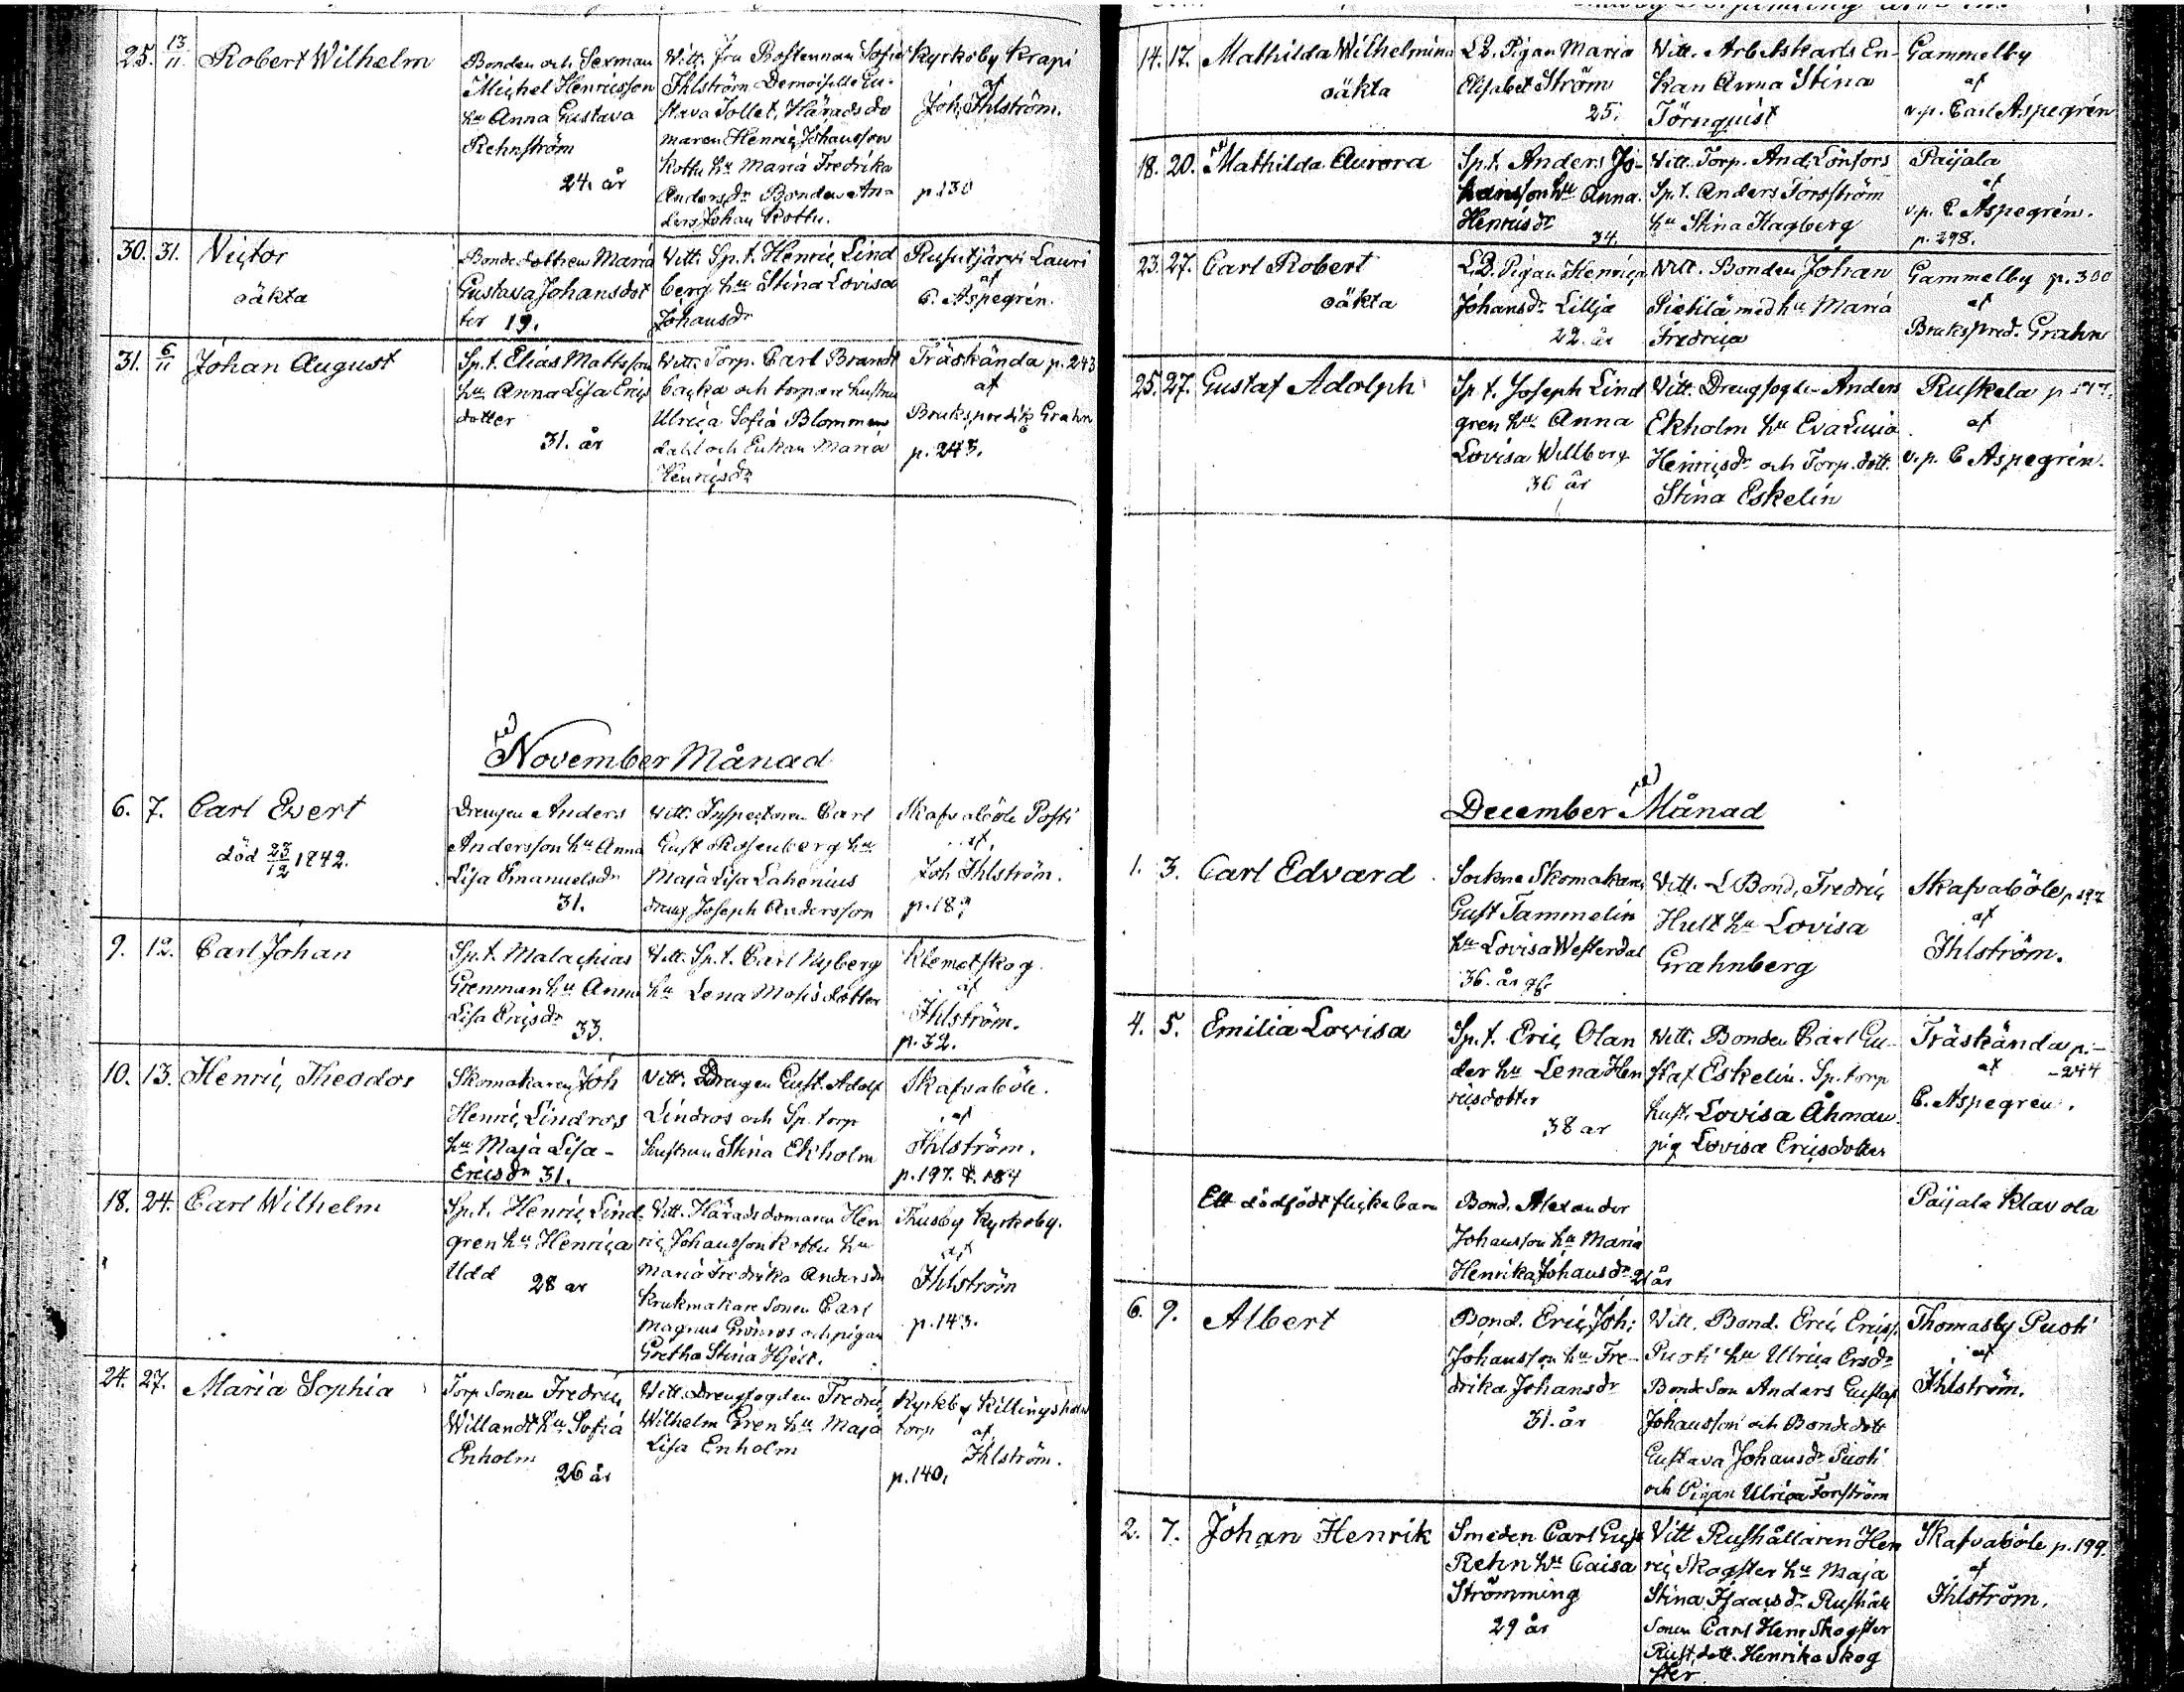 25. 13/11 Robert Wilhelm
Bonden och Sexman
Michel Henricsson
hu Anna Gustava
Rehnström
24. år
Vitt. Fru Bostennan Sofia
Ihlström Demoiselle Gu-
stava Jollet, Härads do
maren Henric Johansson
Kottu hu Maria Fredrika
Andersdr Bonden An-
ders Johan Kottu.
Kyrkoby Krapi
af
Joh. Ihlström.
p.130
30. 31. Victor
oäkta
Bondedottren Maria
Gustava Johansdot
ter 19.
Vitt. Sp.t. Henric Lind
berg hu Stina Lovisa
Johansdr
Rusutjärvi Lauri
af
C. Aspegrén.
31. 6/11 Johan August
Sp.t. Elias Mattsson
hu Anna Lisa Erics
dotter
31. år
Vitt. Torp. Carl Brandt
backa och torpare hustru
Ulrica Sofia Blommen
dahl och Enkan Maria
Henricsdr
Träskända p.243
af
Brukspredik Grahn
p.243.
November Månad
6. 7. Carl Evert
död 23/12 1842.
Drengen Anders
Andersson hu Anna
Lisa Emanuelsdr
31.
Vitt. Inspectoren Carl
Gust Rosenberg hu
Maja Lisa Lahenius
dreng Joseph Andersson
Skafvaböle Posti
af
Joh Ihlström.
p.189
9. 12. Carl Johan
Sp.t. Malachias
Grenman hu Anna
Lisa Ericsdr
33.
Vitt. Sp.t. Carl Nyberg
hu Lena Mosisdotter
Klemetskog
af
Ihlström.
p.32.
10. 13. Henric Theodor
Skomakaren Joh
Henric Lindros
hu Maja Lisa-
Ericsdr 31.
Vitt. Drengen Gust. Adolf
Lindros och Sp. torp
hustrun Stina Ekholm
Skafvaböle.
af
Ihlström.
p.197. & 184
18. 24. Carl Wilhelm
Sp.t. Henric Lind
gren hu Henrica
Udd 28 år
Vitt. Häradsdomaren Hen
ric Johansson Kottu hu
Maria Fredrika Andersdr
Krukmakare Sonen Carl
Magnus Grönros och pigan
Gretha Stina Hjelt.
Thusby Kyrkoby.
af
Ihlström
p.143.
24. 27. Maria Sophia
Torp Sonen Fredric
Willandt hu Sofia
Enholm
26 år
Vitt. Drengfogden Fredric
Wilhelm Gren hu Maja
Lisa Enholm
Kyrkby Killingsholm
torp af
Ihlström.
p.140.
14. 17. Mathilda Wilhelmina
oäkta
L.B. Pigan Maria
Elisabet Ström
25.
Vitt. Arbetskarls En-
kan Anna Stina
Törnquist
Gammelby
af
v.p. Carl Aspegrén
18. 20. Mathilda Aurora
Sp.t. Anders Jo-
hansson hu Anna
Henricsdr
34.
Vitt. Torp. And. Lönfors
Sp.t. Anders Forsström
hu Stina Hagberg
Paijala
af
v.p. C Aspegrén.
p.298.
23. 27. Carl Robert
oäkta
L.B. Pigan Henrica
Johansdr Lillja
22. år
Vitt. Bonden Johan
Pietilä med hu Maria
Fredrica
Gammelby p.300
af
Brukspred. Grahn
25. 27. Gustaf Adolph
Sp t. Joseph Lind
gren hu Anna
Lovisa Willberg
36 år
Vitt. Drengfogde Anders
Ekholm hu Eva Lucia
Henricsdr och Torp. dott.
Stina Eskelin
Ruskela
af
v.p. C Aspegrén.
December Månad
1. 3. Carl Edvard
Sockne Skomakaren
Gust Tammelin
hu Lovisa Westerdal
36. år
Vitt. L Bond. Fredric
Hult hu Lovisa
Grahnberg
Skafvaböle p 192
af
Ihlström.
4. 5. Emilia Lovisa
Sp.t. Eric Olan
der hu Lena Hen
ricsdotter
38 år
Vitt. Bonden Carl Gu-
staf Eskelin. Sp.torp
hust. Lovisa Åhman
pig Lovisa Ericsdotter
Träskända p.-
af -244
C. Aspegren.
Ett dödfödt flickebarn
Bond. Alexander
Johansson hu Maria
Henrika Johansdr 21 år
Paijala Klavola
6. 9. Albert
Bond. Eric Joh:
Johansson hu Fre-
drika Johansdr
31. år
Vitt. Bond. Eric Ericss.
Puoti hu Ulrica Ersdr
Bonde Son Anders Gustaf
Johansson och Bondedott
Gustava Johansdr Puoti
och Pigan Ulrica Forsström
Thomasby Puoti
af
Ihlström.
2. 7. Johan Henrik
Smeden Carl Gust
Rehn hu Caisa
Strömming
29 år
Vitt Rusthållaren Hen
ric Skogster hu Maja
Stina Isaacsdr Rusthåll
Sonen Carl Henr Skogster
Rust. dott. Henrika Skog
ster
Skafvaböle p.199.
af
Ihlström.